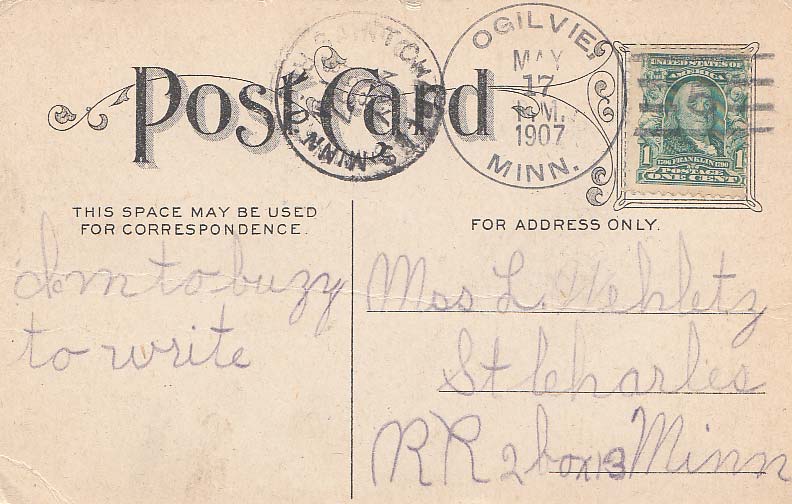 Post Card
SAINT CHARLES MINN.
OGILVIE,
MAY
17
M.
1907
MINN.
UNITED STATES OF
AMERICA
1 1706 FRANKLIN 1790 1
POSTAGE
ONE CENT
THIS SPACE MAY BE USED
FOR CORRESPONDENCE.
Im to buzy
to write
FOR ADDRESS ONLY.
Mss L.
St Charles
RR 2 box 13 Minn